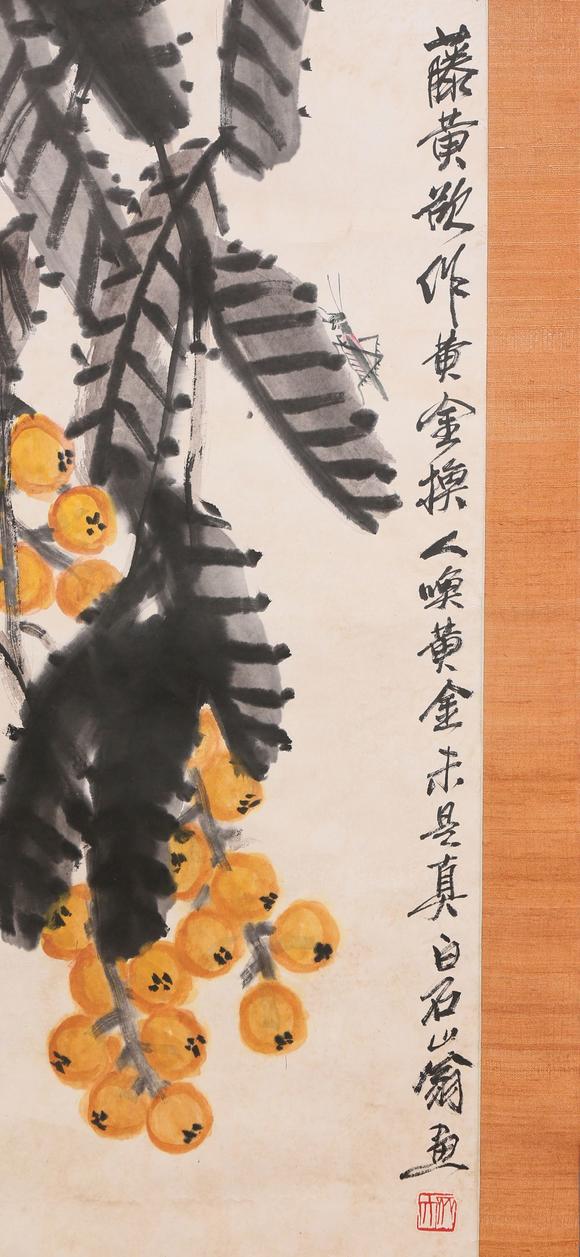 藤黄欲作黄金换人唤黄金未是真白石山翁画